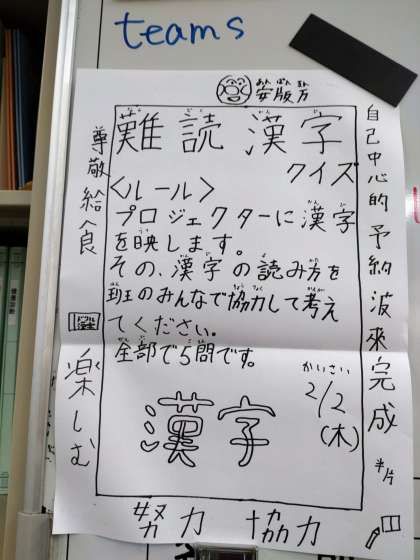 teams
安版万
あんぱんまん
難読漢字
クイズ
<ルール>
プロジェクターに漢字
を映します。
その、漢字の読み方を
班のみんなで協力して考え
てください。
全部で5問です。
かいさい
2/2
(木)
漢字
努力 協力
尊敬給食
楽しむ
自己中心的予約波来完成